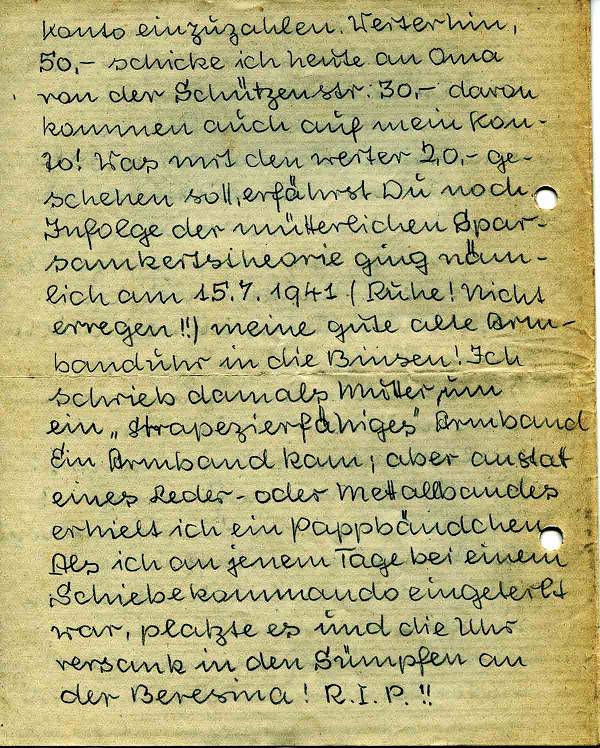 Konto einzuzahlen. Weiterhin,
50,- schicke ich heute an Oma
von der Schützenstr. 30,- davon
kommen auch auf mein Kon-
to! Was mit den weiter 20,- ge-
schehen soll, erfährst Du noch.
Infolge der mütterlichen Spar-
samkeitstheorie ging näm-
lich am 15.7.1941 (Ruhe! Nicht
erregen!!) meine gute alte Arm-
banduhr in die Binsen! Ich
schrieb damals Mutter, um
ein „strapezierfähiges" Armband
Ein Armband kam, aber anstat
eines Leder- oder Metallbandes
erhielt ich ein Pappbändchen
Als ich an jenem Tage bei einem
Schiebekommando eingeteilt
war, platzte es und die Uhr
versank in den Sümpfen an
der Beresina! R.I.P.!!